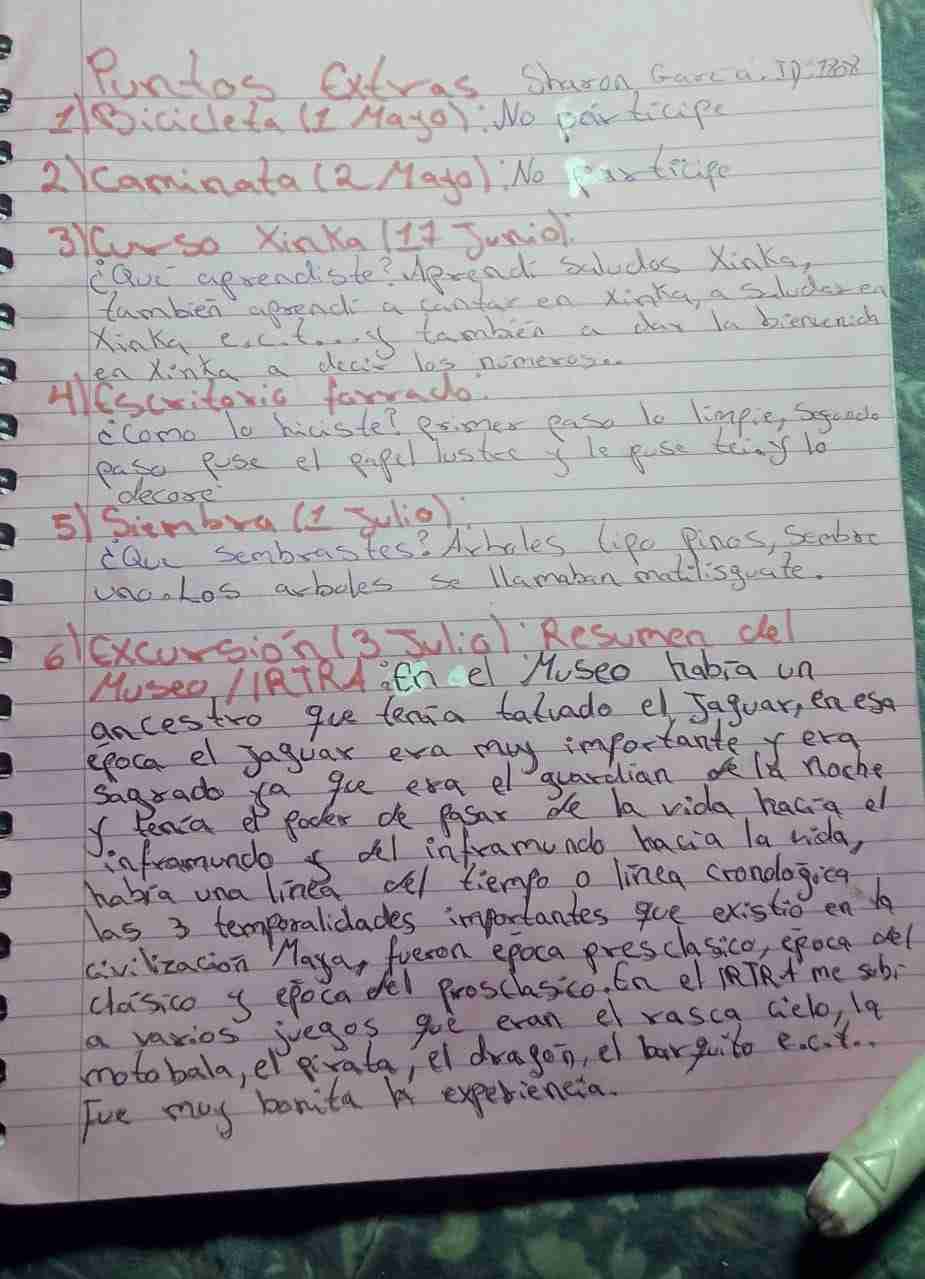 Puntos Extras Sharon Garcia. ID: 1308
1) Bicicleta (1 Mayo): No participe
2) Caminata (2 Mayo): No participe
3) Curso Xinka (17 Junio):
¿Que aprendiste? Aprendi saludos Xinka,
también aprendi a cantar en xinka, a saludar en
Xinka e.c.t.... y también a dar la bienvenida
en Xinka a decir los números...
4) Escritorio forrado:
¿Como lo hiciste? Primer paso lo limpie, Segundo
paso puse el papel lustre y le puse y lo
decore
5) Siembra (1 Julio):
¿Que sembrastes? Arboles tipo pinos, Sembre
uno. Los arboles se llamaban matilisguate.
6) Excursión (3 Julio): Resumen del
Museo / IRTRA: En el Museo había un
ancestro que tenía talvado el Jaguar, en esa
época el Jaguar era muy importante y era
sagrado ya que era el guardian de la noche
y tenía el poder de pasar de la vida hacia el
inframundo y del inframundo hacia la vida,
había una línea del tiempo o línea cronologica
las 3 temporalidades importantes que existio en la
civilización Maya, fueron epoca presclasico, epoca del
clásico y epoca del prosclasico. En el IRTRA me subi
a varios juegos que eran el rasca cielo, la
motobala, el pirata, el dragón, el barquito e.c.t..
Fue muy bonita la experiencia.